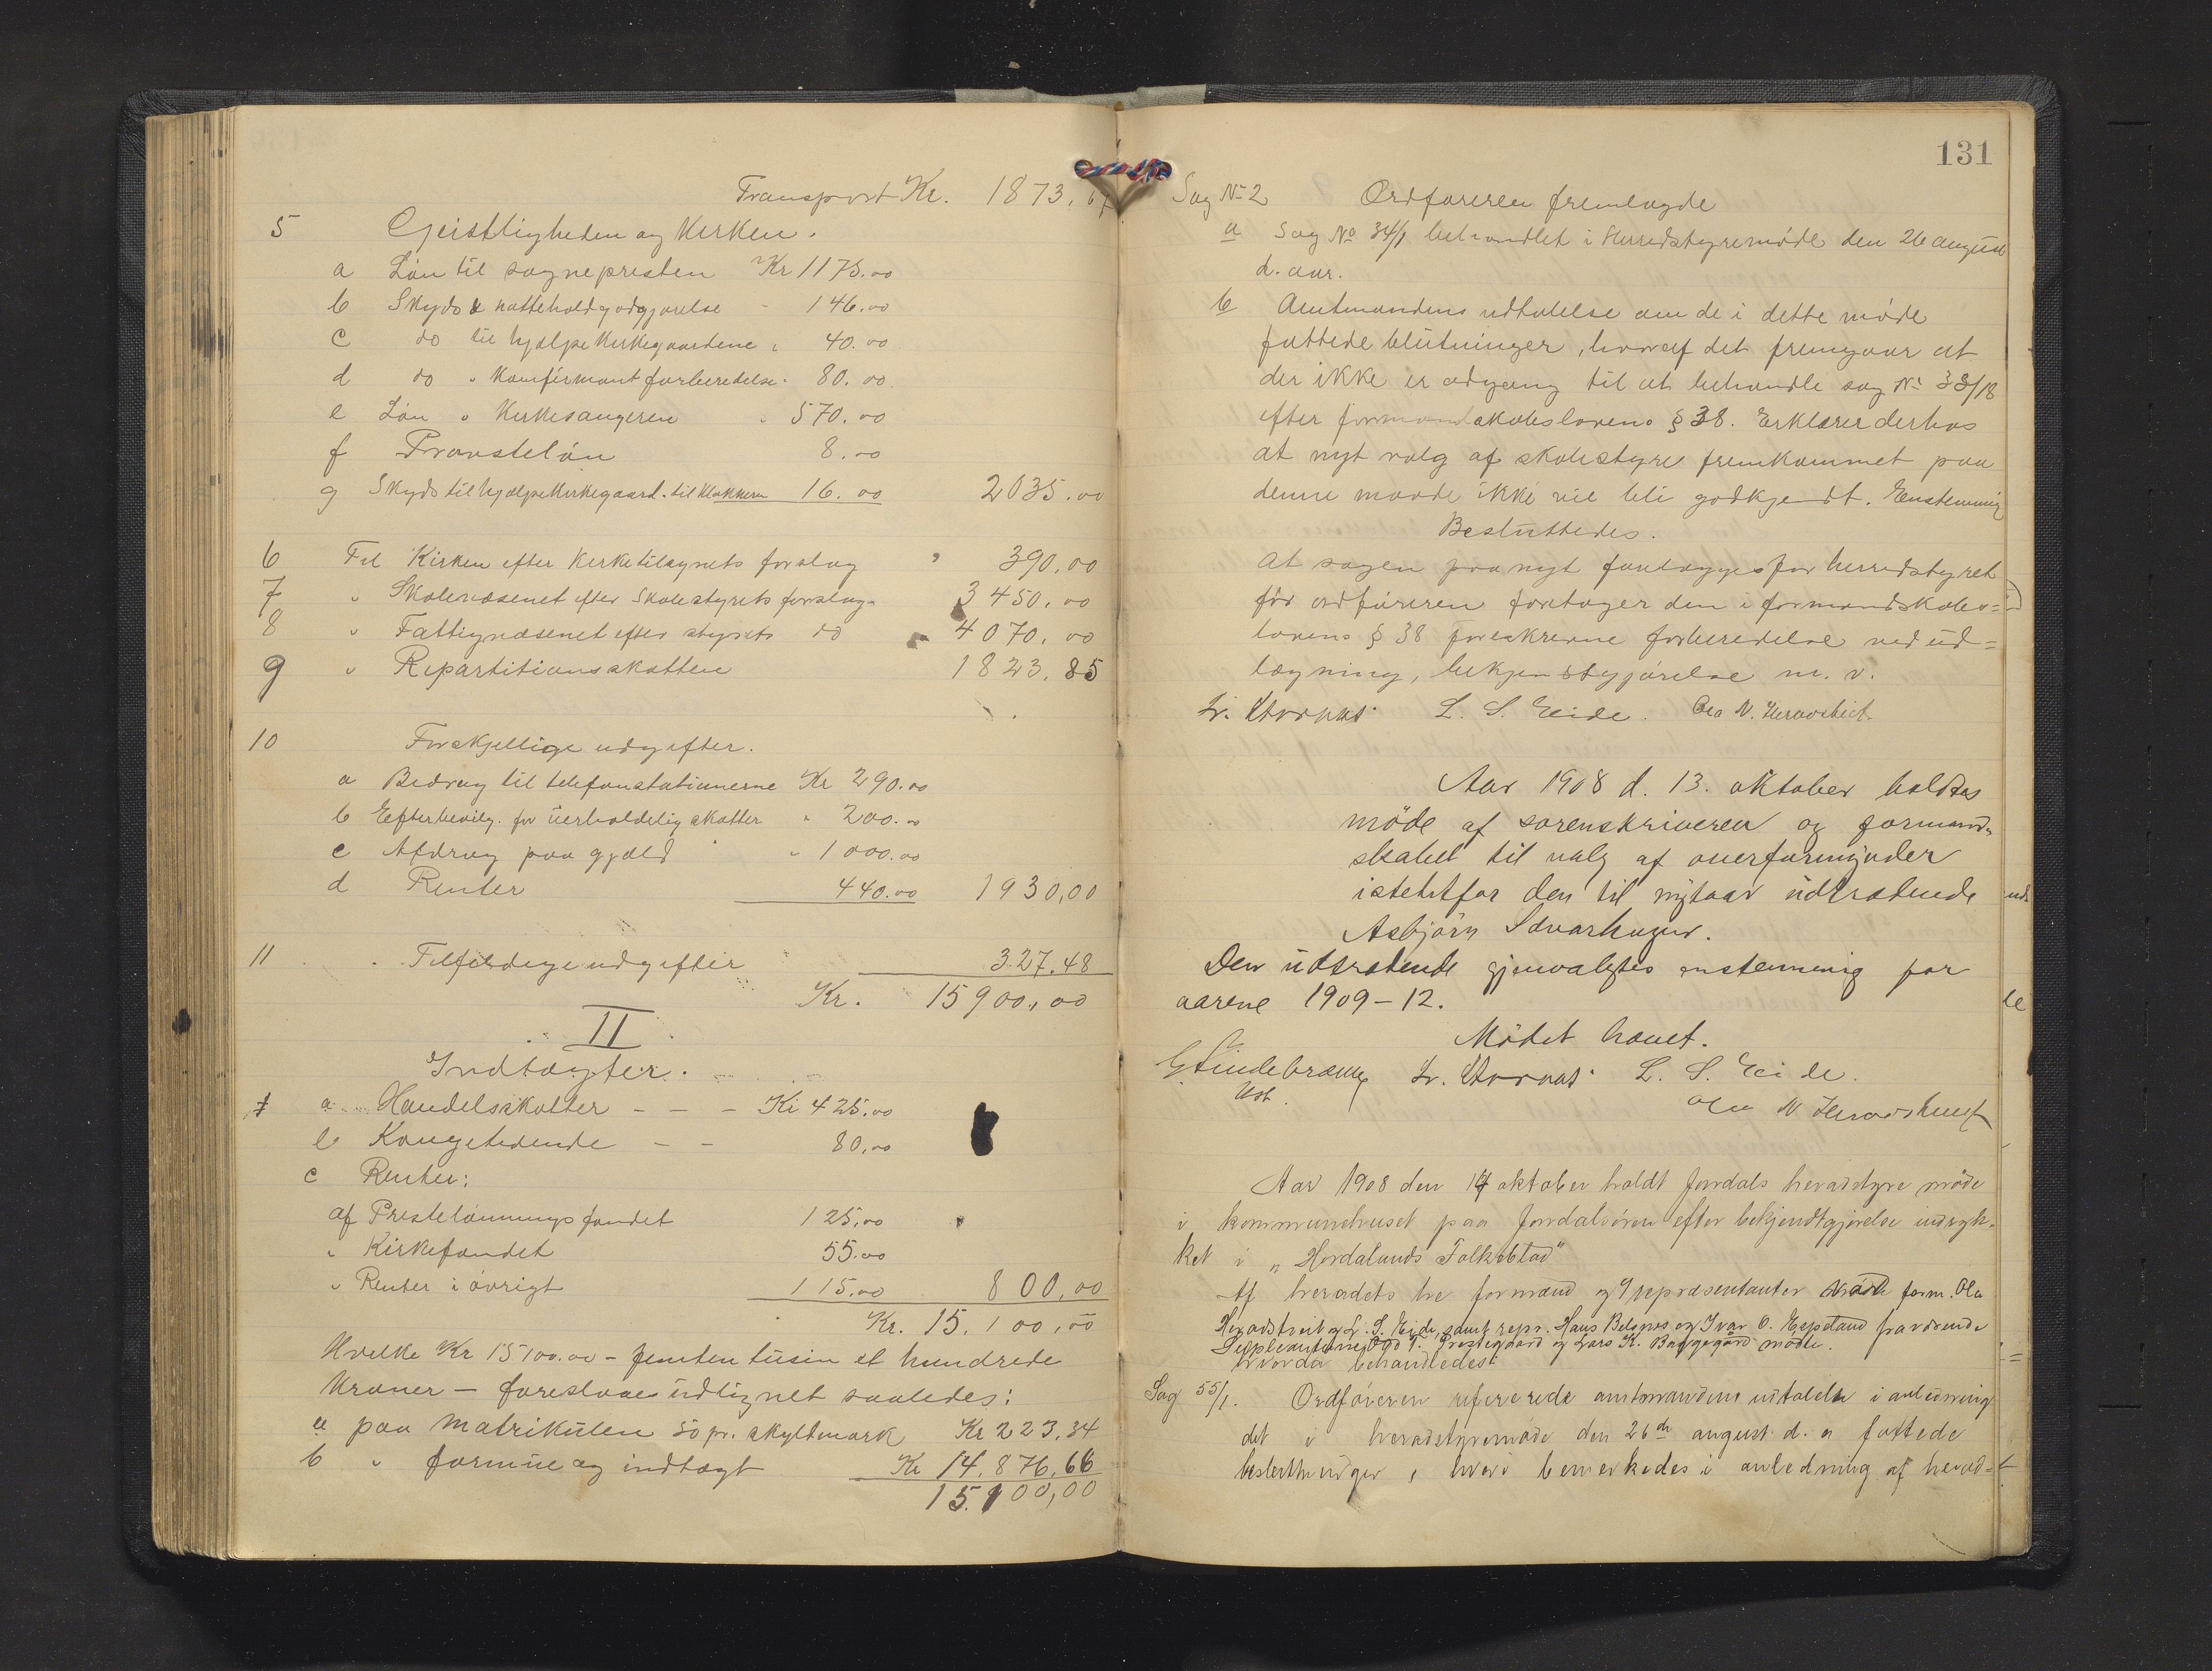 Transport Kr. 1873.67
5 Geistligheden og Kirken.
a Løn til sognepresten Kr 1175.00
b Skyds & natteholdgodgjørelse - 146.00
c do til hjælpekirkegaardene " 40.00
d do " Konfirmantforberedelse - 80.00
e Løn " Kirkesangeren " 570.00
f Provsteløn 8.00
g Skyds til hjælpekirkegaard. til klokkeren 16.00 2035.00
6 Til Kirken efter Kirketilsynets forslag " 390,00
7 " Skolevæsenet efter Skolestyrets forslag " 3450,00
8 " Fattigvæsenet efter styrets do " 4070,00
9 " Repartitionsskatten 1823.85
10 Forskjellige udgifter.
a Bidrag til telefonstationerne Kr 290.00
b Efterbevilg. for uerholdelig skatter " 200.00
c Afdrag paa gjæld " 1000.00
d Renter 440.00 1930,00
11 Tilfældige udgifter 327.48
Kr. 15900,00
II
Indtægter.
1 a Handelsskatter - - - Kr 425.00
b Kongetiende - - 80,00
c Renter:
af Prestelønningsfondet 125,00
" Kirkefondet 55.00
" Renter i øvrigt 115.00 800,00
Kr. 15.100,00
Hvilke Kr 15100.00 - femten tusin et hundrede
Kroner - foreslaaes udlignet saaledes:
a paa Matrikulen 50 pr. skyldmark Kr 223,34
b " formue og indtægt Kr 14.876,66
15.100,00
131
Sag No 2 Ordføreren fremlagde
a Sag No 34/1 behandlet i Herredstyremøde den 26 august
d. aar.
b Amtmandens udtalelse om de i dette møde
fattede blutninger, hvoraf det fremgaar at
der ikke er adgang til at behandle sag No 38/18
efter formandskabslovens § 38. Erklærer derhos
at nyt valg af skolestyre fremkommet paa
denne maade ikke vil bli godkjendt. Enstemmig
Besluttedes.
at sagen paanyt forelægges for herredstyret
før ordføreren foretager den i formandskabs=
lovens § 38 foreskrevne forberedelse ved ud=
lægning, bekjendtgjørelse m. v.
L. S. Eide. Ola N. Heradstveit
Aar 1908 d. 13. oktober holdtes
møde af sorenskriveren og formand-
skabet til valg af overformynder
istedetfor den til nytaar udtrædende
Asbjørn Samarhaguv.
Den udtrædende gjenvalgtes enstemmig for
aarene 1909-12.
Mødet hævet.
L. S. Eide.
Ola N. Heradstveit
Aar 1908 den 14 oktober holdt Jondals heradstyre møde
i kommunehuset paa Jondalsøren efter bekjendtgjørelse indryk-
ket i „Hordalands Folkeblad"
Af heradets tre formænd og 9 repræsentanter møtte form. Ola
Heradstveit og L. S. Eide, samt repr. Hans Belsnes og Ivar O. Espeland fraværende
Suppleanterne Odd T. Prestegaard og Lars K. Byggegård mødte.
hvorda behandledes:
Sag 55/1. Ordføreren refererede amtmandens udtalelse i anledning
det i heradstyremøde den 26de august d. a fattede
beslutninger, hvori bemerkedes i anledning af herad=